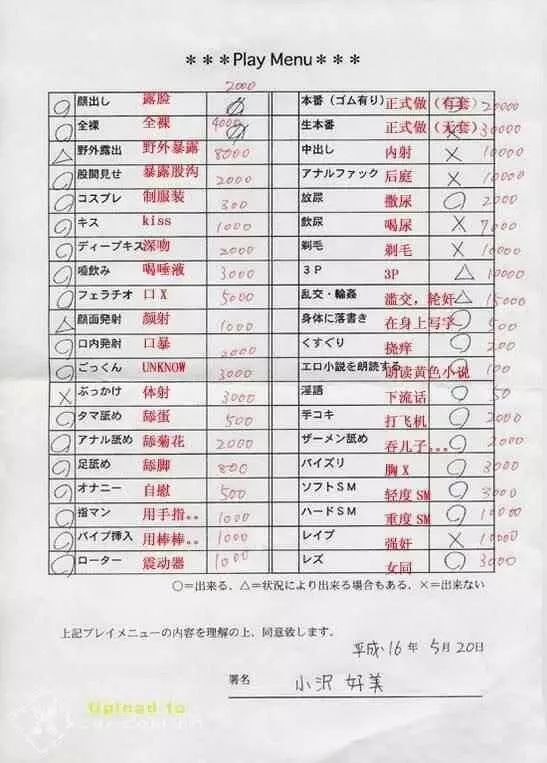 ***Play Menu***
2000
○ 顔出し 露脸
○ 全裸 全裸 4000
△ 野外露出 野外暴露 8000
○ 股間見せ 暴露股沟 2000
○ コスプレ 制服装 300
○ キス kiss 1000
○ ディープキス 深吻 2000
○ 唾飲み 喝唾液 3000
○ フェラチオ 口X 5000
△ 顔面発射 颜射 1000
○ 口内発射 口暴 2000
○ ごっくん UNKNOW 3000
× ぶっかけ 体射 3000
○ タマ舐め 舔蛋 500
○ アナル舐め 舔菊花 2000
○ 足舐め 舔脚 800
○ オナニー 自慰 500
○ 指マン 用手指。。 1000
○ バイブ挿入 用棒棒。。 1000
○ ローター 震动器 1000
本番（ゴム有り） 正式做（有套） 20000
生本番 正式做（无套） × 30000
中出し 内射 × 10000
アナルファック 后庭 × 10000
放尿 撒尿 ○ 2000
飲尿 喝尿 × 7000
剃毛 剃毛 × 10000
3P 3P △ 10000
乱交・輪姦 滥交，轮奸 △ 15000
身体に落書き 在身上写字 ○ 500
くすぐり 挠痒 ○ 200
エロ小説を朗読する 朗读黄色小说 ○ 100
淫語 下流话 ○ 50
手コキ 打飞机 ○ 2000
ザーメン舐め 吞儿子。。。 ○ 2000
パイズリ 胸X ○ 3000
ソフトSM 轻度SM ○ 3000
ハードSM 重度SM ○ 10000
レイプ 强奸 × 10000
レズ 女同 ○ 3000
○=出来る、△=状況により出来る場合もある、×=出来ない
上記プレイメニューの内容を理解の上、同意致します。
平成16年 5月20日
署名 小沢 好美
Upload to